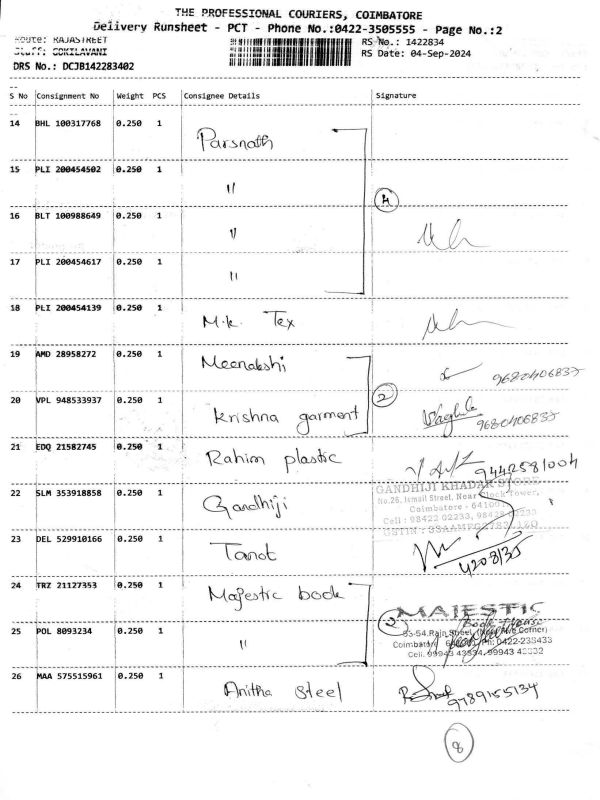 THE PROFESSIONAL COURIERS, COIMBATORE
Delivery Runsheet - PCT - Phone No.:0422-3505555 - Page No.:2
Route: RAJASTREET
RS No.: 1422834
Staff: GOKILAVANI
RS Date: 04-Sep-2024
DRS No.: DCJB142283402
S No Consignment No Weight PCS Consignee Details Signature
14 BHL 100317768 0.250 1 Parsnath
15 PLI 200454502 0.250 1 "
4
16 BLT 100988649 0.250 1 "
17 PLI 200454617 0.250 1 "
18 PLI 200454139 0.250 1 M.k. Tex
19 AMD 28958272 0.250 1 Meenakshi
2
20 VPL 948533937 0.250 1 krishna garment
21 EDQ 21582745 0.250 1 Rahim plastic
9442581004
22 SLM 353918858 0.250 1 Gandhiji
GANDHIJI KHADAR STORE
No.26, Ismail Street, Near Clock Tower,
Coimbatore - 641001
Cell : 98422 02233,
23 DEL 529910166 0.250 1 Tanot
24 TRZ 21127353 0.250 1 Majestic book
2
MAJESTIC
Book House
25 POL 8093234 0.250 1 "
Coimbatore
Cell: 99943 43334, 99943 43332
26 MAA 575515961 0.250 1 Anitha Steel
9789155134
8